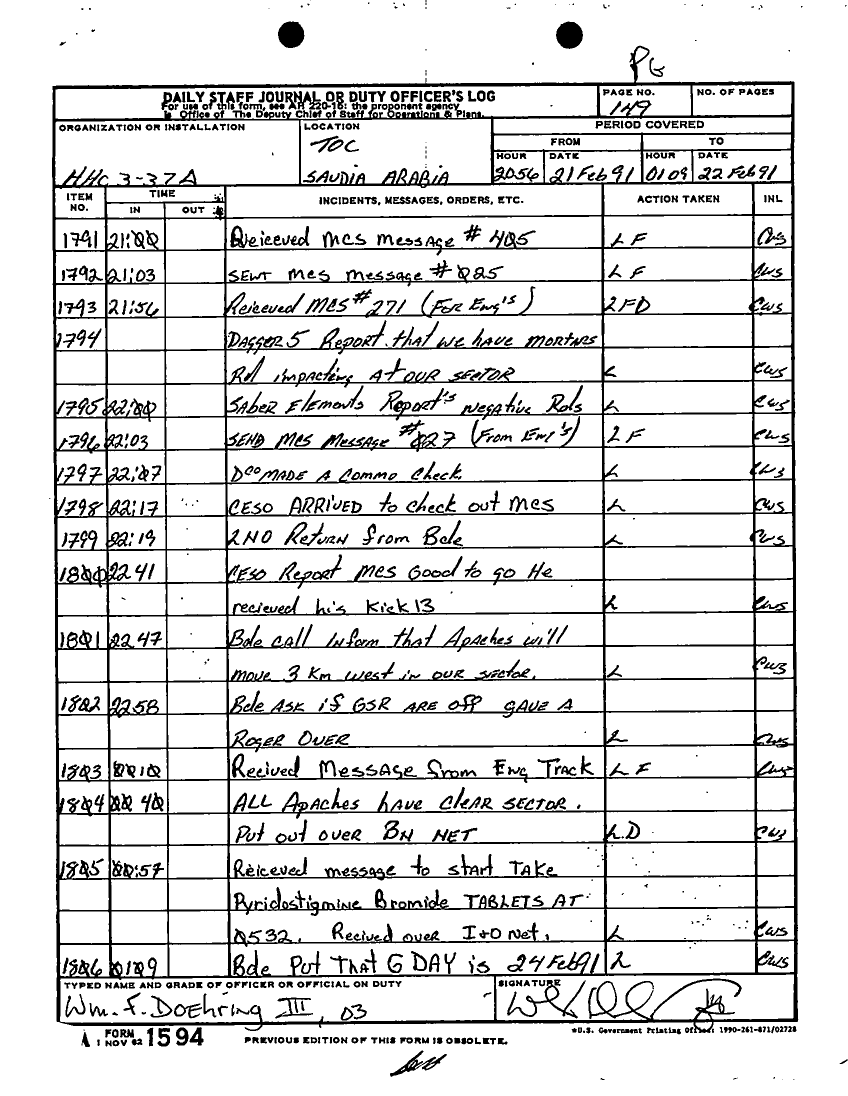 PG
DAILY STAFF JOURNAL OR DUTY OFFICER'S LOG
For use of this form, see AR 220-15; the proponent agency
is Office of The Deputy Chief of Staff for Operations & Plans.
PAGE NO.
149
NO. OF PAGES
ORGANIZATION OR INSTALLATION
HHC 3-37A
LOCATION
TOC
SAUDIA ARABIA
PERIOD COVERED
FROM TO
HOUR DATE HOUR DATE
2056 21 Feb 91 0109 22 Feb 91
ITEM NO. TIME IN OUT INCIDENTS, MESSAGES, ORDERS, ETC. ACTION TAKEN INL
1791 21:00 Reiceeved mcs message # 405 L F CWS
1792 21:03 SENT mcs message # 025 L F CWS
1793 21:56 Reiceved MCS # 271 (For Eng's) LFD CWS
1794 DAGGER 5 Report that we have mortars
Rd impacting At our SECTOR L CWS
1795 22:00 SABER Elements Report's negative Rds L CWS
1796 22:03 SEND MCS Message # 027 (From Eng's) L F CWS
1797 22:07 D co MADE A Commo Check. L CWS
1798 22:17 CESO ARRIVED to check out mcs L CWS
1799 22:19 LNO Return from Bde L CWS
1800 22 41 CESO Report MCS Good to go He
recieved his Kick 13 L CWS
1801 22 47 Bde call inform that Apaches will
move 3 Km west in our sector. L CWS
1802 2258 Bde ASK if GSR ARE off GAVE A
Roger OVER L CWS
1803 0010 Recived Message from Eng Track L F CWS
1804 00 40 ALL Apaches have clear SECTOR.
Put out over BN NET L.D CWS
1805 00:57 Reiceved message to start TAKE
Pyridostigmine Bromide TABLETS AT
0532. Recived over I+O Net. L CWS
1806 0109 Bde Put That G DAY is 24 Feb 91 L CWS
TYPED NAME AND GRADE OF OFFICER OR OFFICIAL ON DUTY
Wm. F. Doehring III, 03
SIGNATURE
FORM 1594
1 NOV 62
PREVIOUS EDITION OF THIS FORM IS OBSOLETE.
*U.S. Government Printing Office: 1990-261-871/02728